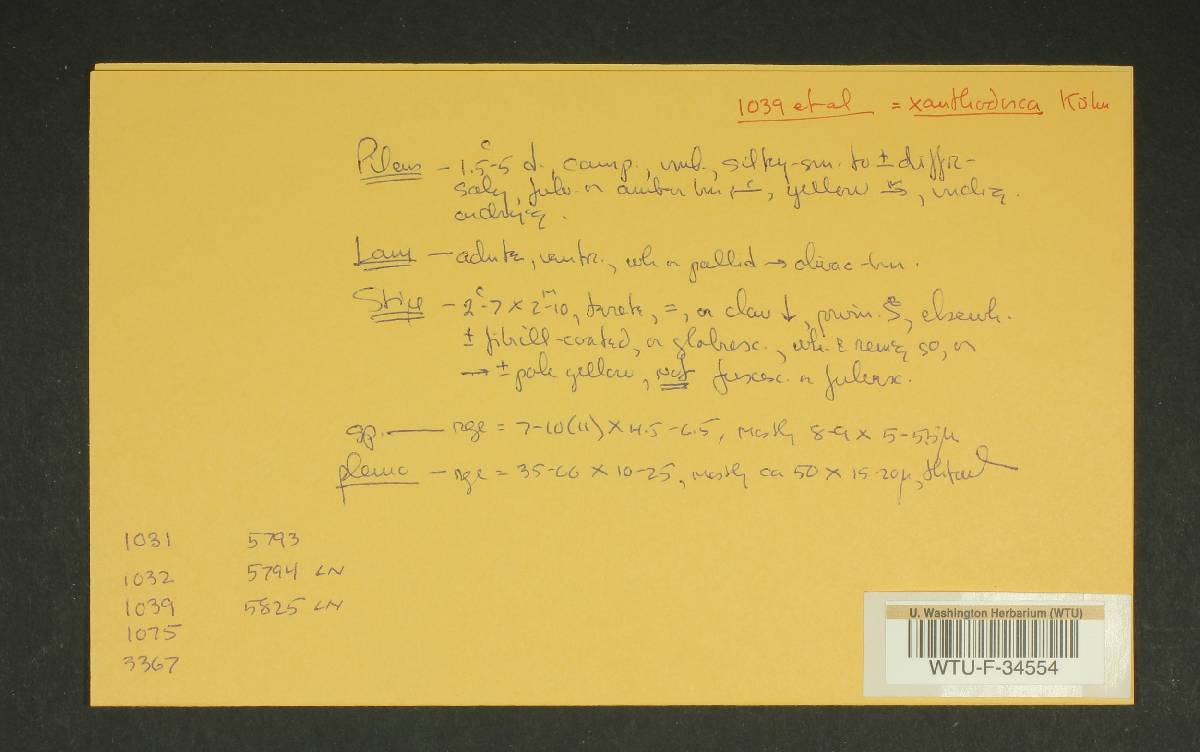 1039 et al = xanthodisca Kühn
Pileus - 1.5-5 d., camp., umb., silky-sm. to ± diffr-
scaly, fulv. or amber brn, yellow
ondrying.
Lam - adnate, ventr., wh or pallid → olivac-brn.
Stipe - 2-7 x 2-10, terete, =, or clav ↓, pruin. elsewh.
± fibrill-coated, or glabresc., wh. & remng so, or
→ ± pale yellow, not fuscesc. or fulvesc.
sp. — rge = 7-10(11) x 4.5-6.5, mostly 8-9 x 5-5.5µ
pleuro - rge = 35-66 x 10-25, mostly ca 50 x 15-20µ,
1031 5793
1032 5794 LN
1039 5825 LN
1075
3367
U. Washington Herbarium (WTU)
WTU-F-34554